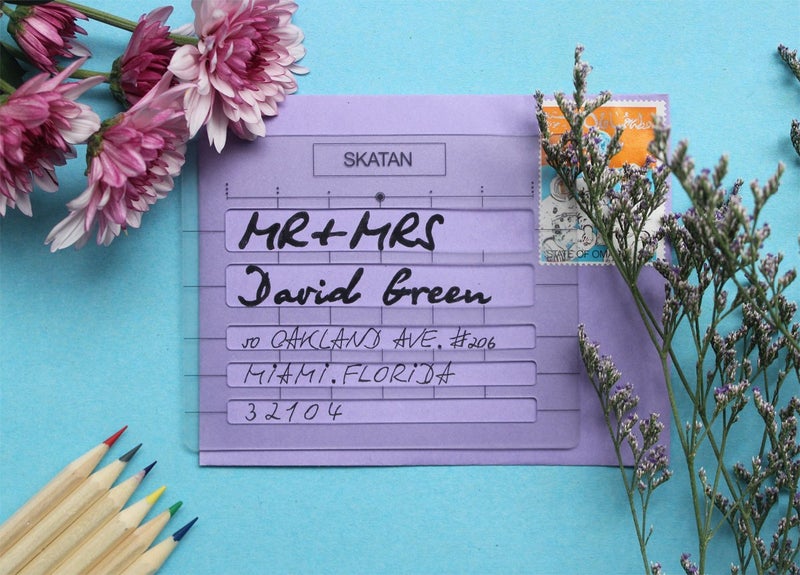 SKATAN
MR + MRS
David Green
50 OAKLAND AVE. #206
MIAMI. FLORIDA
32104
STATE OF OM